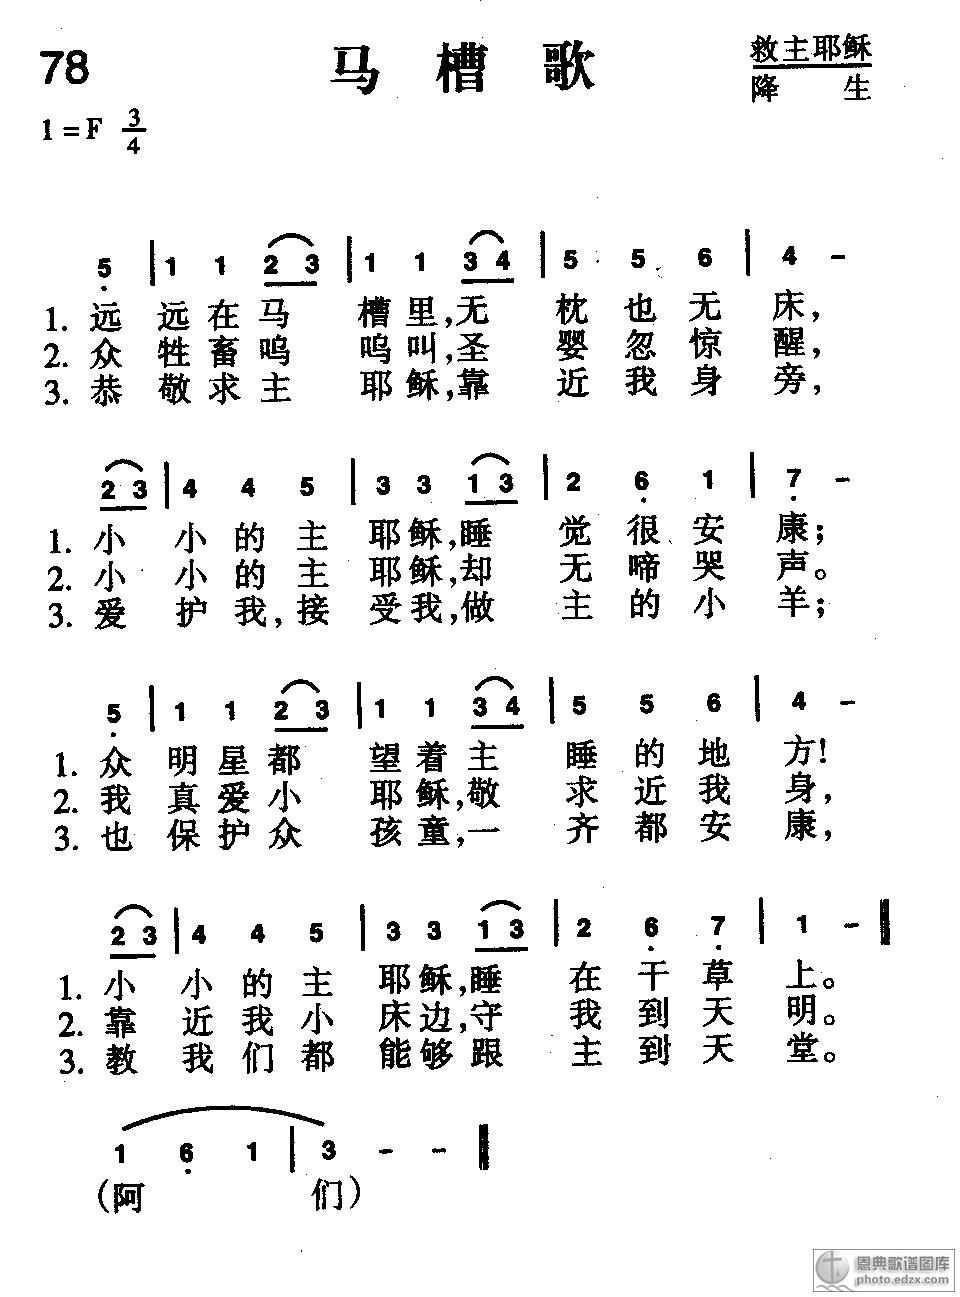 78 马槽歌 救主耶稣
降生
1=F 3/4
5 | 1 1 2 3 | 1 1 3 4 | 5 5 6 | 4 -
1. 远远在马槽里,无枕也无床,
2. 众牲畜呜呜叫,圣婴忽惊醒,
3. 恭敬求主耶稣,靠近我身旁,
2 3 | 4 4 5 | 3 3 1 3 | 2 6 1 | 7 -
1. 小小的主耶稣,睡觉很安康;
2. 小小的主耶稣,却无啼哭声。
3. 爱护我,接受我,做主的小羊;
5 | 1 1 2 3 | 1 1 3 4 | 5 5 6 | 4 -
1. 众明星都望着主睡的地方!
2. 我真爱小耶稣,敬求近我身,
3. 也保护众孩童,一齐都安康,
2 3 | 4 4 5 | 3 3 1 3 | 2 6 7 | 1 -
1. 小小的主耶稣,睡在干草上。
2. 靠近我小床边,守我到天明。
3. 教我们都能够跟主到天堂。
1 6 1 | 3 - -
(阿们)
恩典歌谱图库
photo.edzx.com